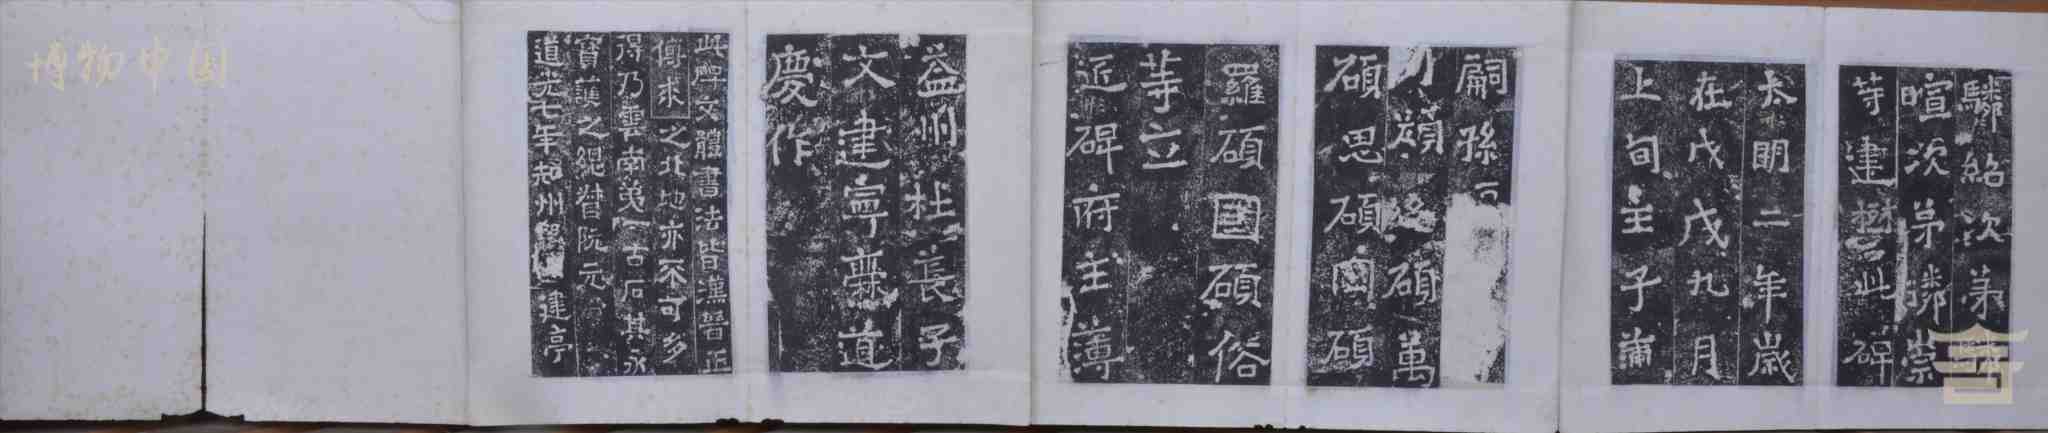 驎紹次弟驎
暄次弟驎崇
等建樹此碑
太明二年歲
在戊戌九月
上旬壬子蒲
嗣孫
碩萬
碩思碩罔碩
羅碩國碩俗
等立
近碑府主薄
益州杜萇子
文建寧爨道
慶作
此碑文體書法皆漢晉正
傳求之北地亦不可多
得乃雲南第一古石其永
寶護之總督阮元
道光七年知州建亭
博物中国